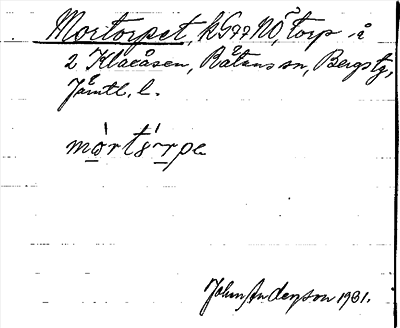 Mortorpet, kG77NO, torp å
2 Klaxåsen, Rätans sn, Bergs tg,
Jämtl. l.
mòrtórpe
John Anderson 1931.